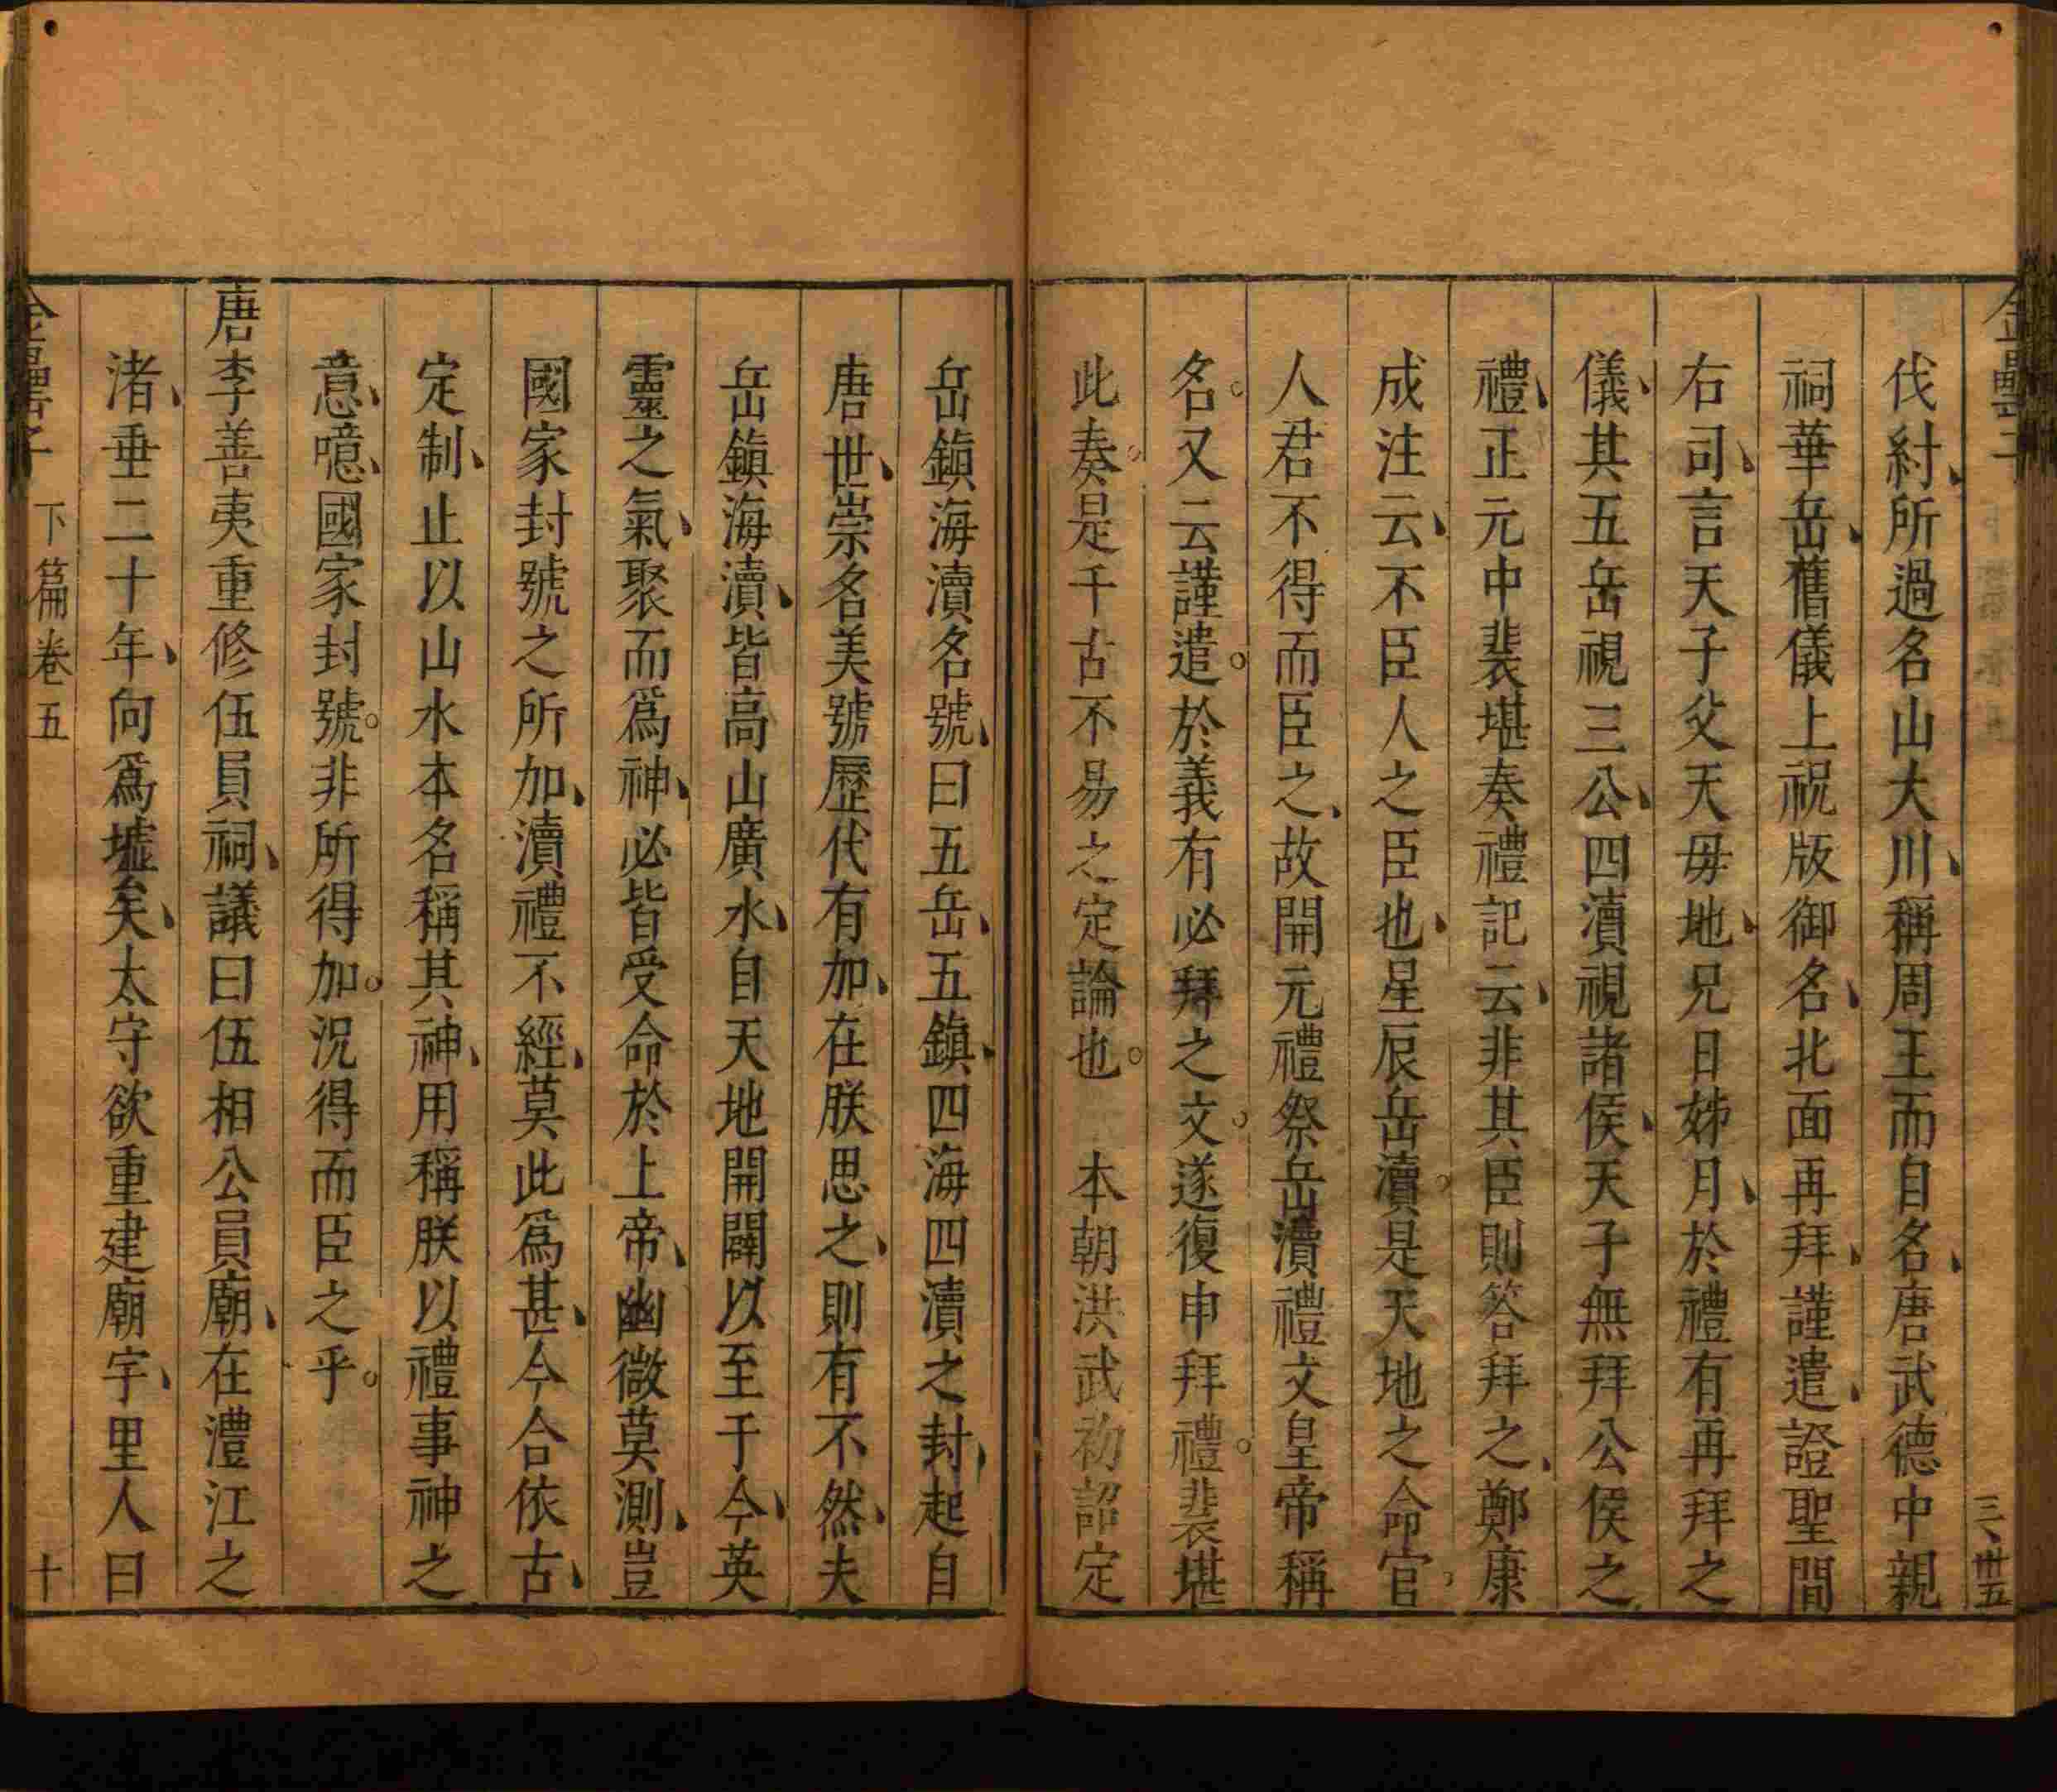 伐紂、所過名山大川、稱周王而自名、唐武德中親
祠華岳、舊儀上祝版御名、北面再拜、謹遣、證聖間
右司、言天子父天毋地、兄日姊月、於禮有再拜之
儀、其五岳視三公、四瀆視諸侯、天子無拜公侯之
禮、正元中裴堪奏禮記云、非其臣則答拜之、鄭康
成注云、不臣人之臣也、星辰岳瀆。是天地之命官、
人君不得而臣之、故開元禮祭岳瀆禮文皇帝稱
名。又云謹遣。於義有必拜之文。遂復申拜禮。裴堪
此奏。是千古不易之定論也。　本朝洪武初詔定
岳鎮海瀆名號、曰五岳、五鎮、四海四瀆之封、起自
唐世、崇名美號歷代有加、在朕思之、則有不然、夫
岳鎮海瀆、皆高山廣水、自天地開闢以至于今、英
靈之氣、聚而爲神、必皆受命於上帝、幽微莫測、豈
國家封號之所加、瀆禮不經、莫此爲甚、今合依古、
定制、止以山水本名稱其神、用稱朕以禮事神之
意、噫、國家封號。非所得加。況得而臣之乎。
唐李善夷重修伍員祠、議曰伍相公員廟、在澧江之
渚、垂二十年、向爲墟矣、太守欲重建廟宇、里人曰
金罍子　下篇卷五　十
三、卅五